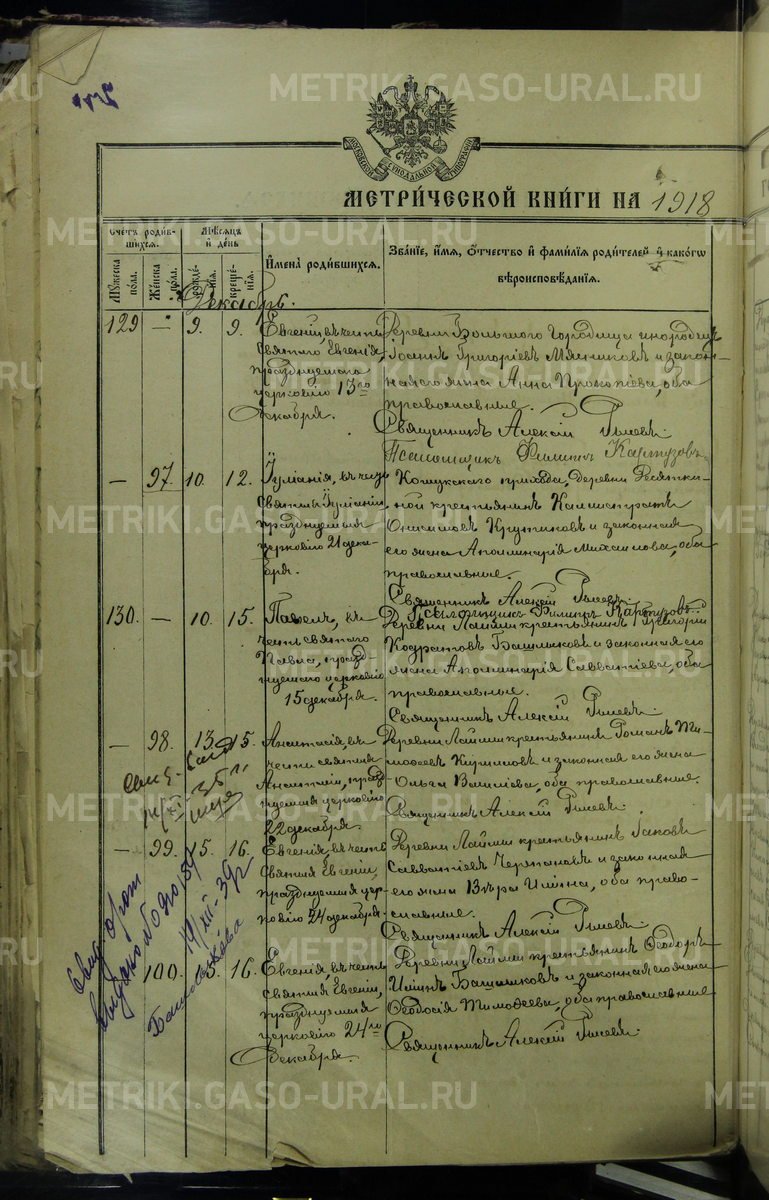 METRIKI.GASO-URAL.RU
МОСКОВСКОЙ СѴНОДАЛЬНОЙ ТИПОГРАФІИ
МЕТРИ́ЧЕСКОЙ КНИ́ГИ НА 1918
Счетъ роди́вшихся.
Мꙋжеска пола.
Же́нска пола.
Мѣ́сяцъ и҆ де́нь
рожде́нїя.
креще́нїя.
И҆мена̀ роди́вшихся.
Зва́нїе, и҆́мя, ѻ҆́тчество и҆ фами́лїя роди́телей и҆ како́гѡ вѣроисповѣ́данїя.
Декабрь.
129 — 9. 9. Евгеній, въ честь
святаго Евгенія,
празднуемаго
церковію 13го
декабря.
Деревни Большого Городища инородецъ
Іоаннъ Григоріевъ Мячиковъ и закон-
ная его жена Анна Прокопіева, оба
православные.
Священникъ Алексій
Псаломщикъ Филиппъ Картузовъ
— 97. 10. 12. Іуліанія, въ честь
святыя Іуліаніи,
празднуемыя
церковію 21 дека-
бря.
прихода, деревни
крестьянинъ Каллистратъ
Онисимовъ Крутиковъ и законная
его жена Аполлинарія Михаилова, оба
православные.
Священникъ Алексій
Псаломщикъ Филиппъ Картузовъ
130. — 10. 15. Павелъ, въ
честь святаго
Павла, празд-
нуемаго церковію
15 декабря.
Деревни Лаймы крестьянинъ Григорій
Кодратовъ Башлыковъ и законная его
жена Аполлинарія Савватіева, оба
православные.
Священникъ Алексій
— 98. 13. 15. Анастасія, въ
честь святыя
Анастасіи, празд-
нуемыя церковію
22 декабря.
Деревни Лаймы крестьянинъ Романъ Ти-
моѳеевъ Кирилловъ и законная его жена
Ольга Василіева, оба православные.
Священникъ Алексій
— 99. 15. 16. Евгенія, въ честь
святыя Евгеніи,
празднуемыя цер-
ковію 24 декабря.
Деревни Лаймы крестьянинъ Іаковъ
Савватіевъ Черпановъ и законная
его жена Вѣра Ильина, оба право-
славные.
Священникъ Алексій
100. 15. 16. Евгенія, въ честь
святыя Евгеніи,
празднуемыя
церковію 24го
декабря.
Деревни Лаймы крестьянинъ Ѳеодоръ
Ильинъ Башлыковъ и законная его жена
Ѳеодосія Тимоѳеева, оба православные
Священникъ Алексій